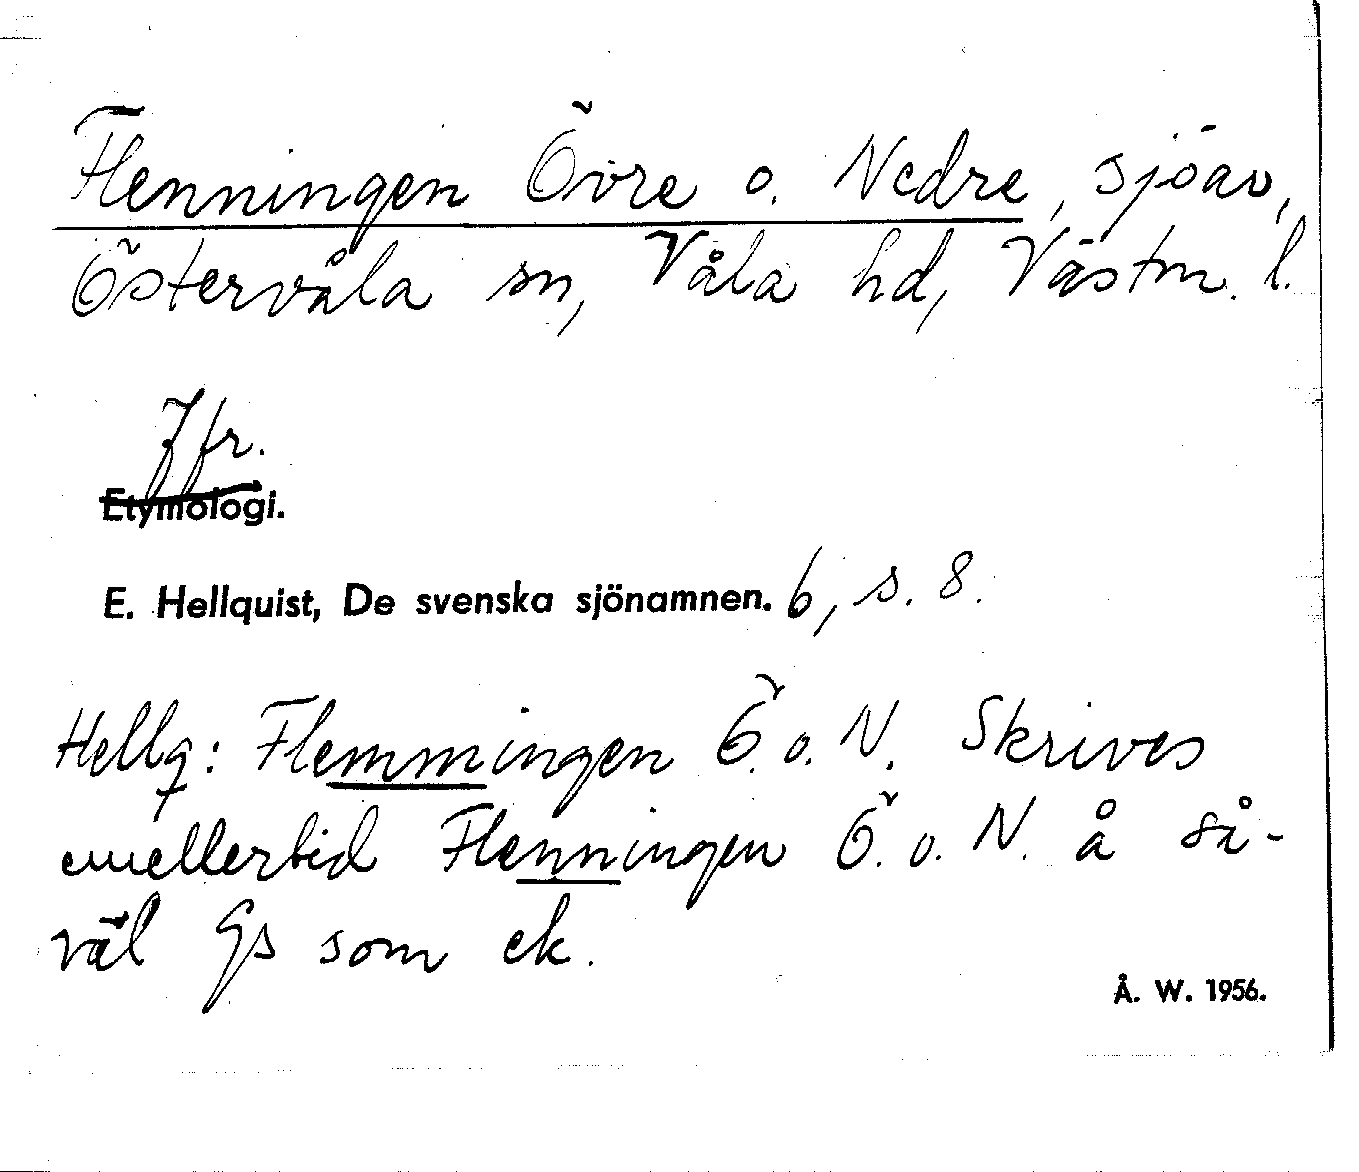 Flenningen Övre o. Nedre, sjöar,
Östervåla sn, Våla hd, Västm. l.
Jfr.
Etymologi.
E. Hellquist, De svenska sjönamnen. 6, s. 8.
Hellq: Flemmingen Ö. o. N. Skrives
emellertid Flenningen Ö. o. N. å så-
väl Gs som ek.
Å. W. 1956.